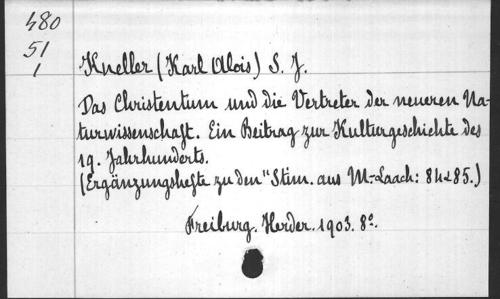 480
51
1
Kneller (Karl Alois) S. J.
Das Christentum und die Vertreter der neueren Na-
turwissenschaft. Ein Beitrag zur Kulturgeschichte des
19. Jahrhunderts.
(Ergänzungshefte zu den "Stim. aus M.-Laach: 84 & 85.)
Freiburg. Herder. 1903. 8°.